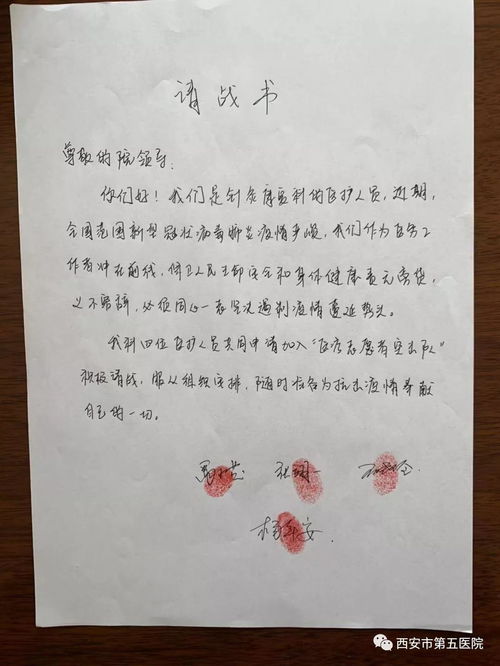 请战书
尊敬的院领导:
你们好!我们是针灸康复科的医护人员,近期,
全国范围新型冠状病毒肺炎疫情严峻,我们作为医务工
作者冲在前线,保卫人民生命安全和身体健康责无旁贷,
义不容辞,必须同心一志坚决遏制疫情蔓延势头。
我科四位医护人员共同申请加入“医疗志愿者突击队”
积极请战,服从组织安排,随时准备为抗击疫情奉献
自己的一切。
西安市第五医院